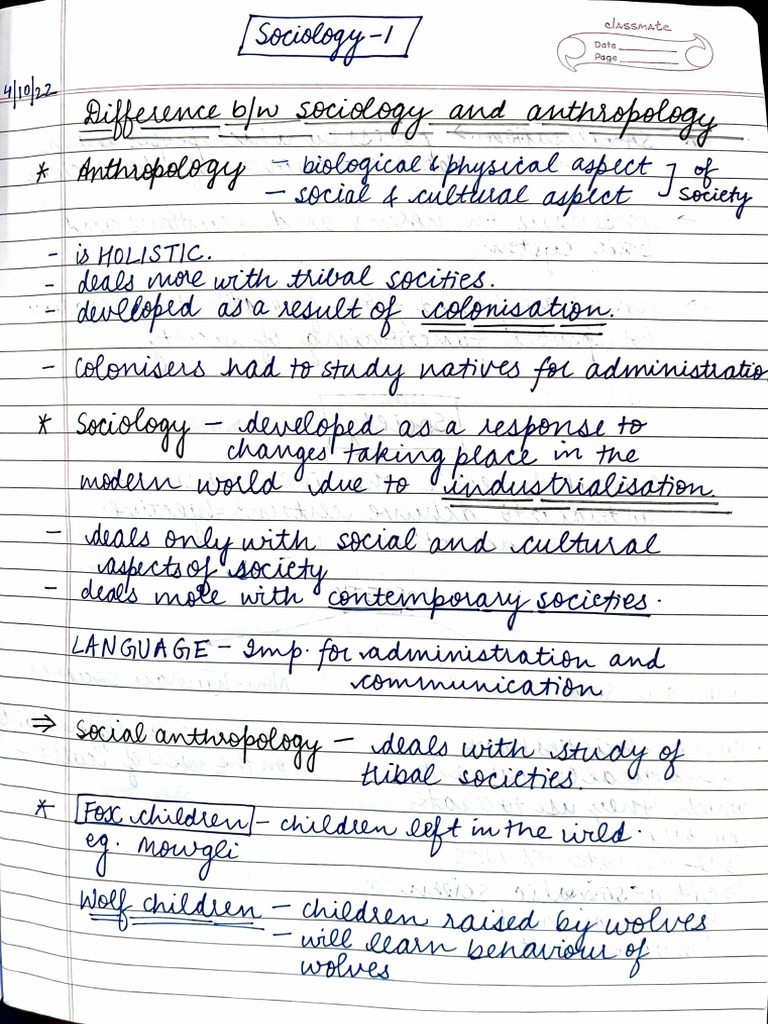 Sociology-1
classmate
Date
Page
4/10/22
Difference b/w sociology and anthropology
* Anthropology - biological & physical aspect ] of
- social & cultural aspect Society
- is HOLISTIC.
- deals more with tribal socities.
- devlloped as a result of colonisation.
- Colonisers had to study natives for administratio
* Sociology - developed as a response to
changes taking place in the
modern world due to industrialisation.
- deals only with social and cultural
aspects of society
- deals more with contemporary societies.
LANGUAGE - Imp. for administration and
communication
⇒ Social anthropology - deals with study of
tribal societies.
* Fox children - children left in the wild.
eg. Mowgli
Wolf children - children raised by wolves
- will learn behaviour of
wolves